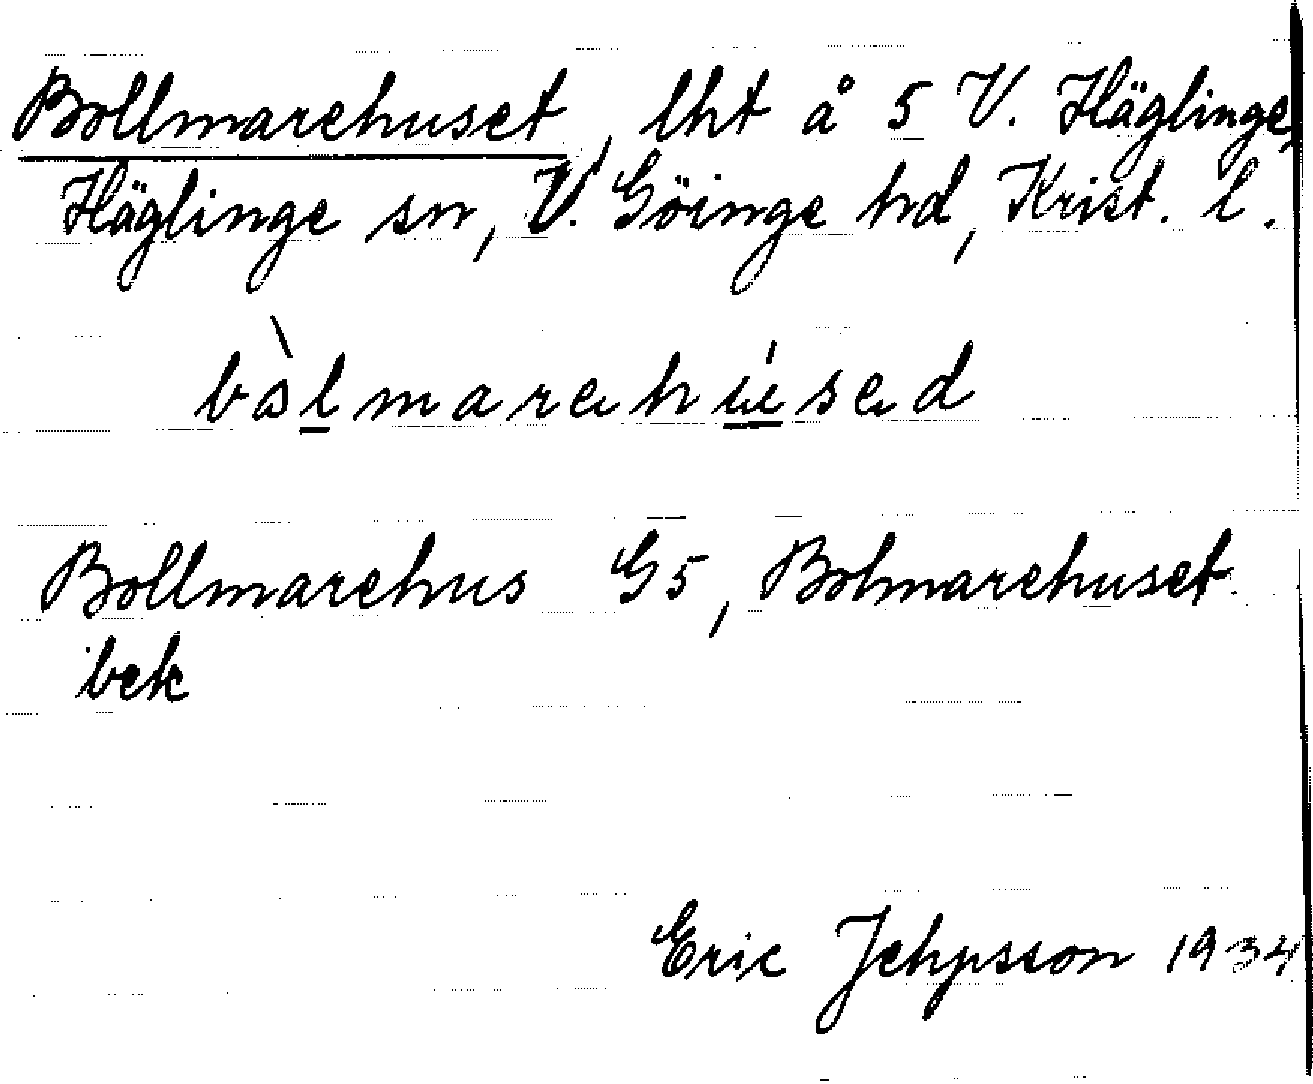 Bollmarehuset, lht å 5 V. Häglinge,
Häglinge sn, V. Göinge hd, Krist. l.
bòlmarehúsed
Bollmarehus G5, Bolmarehuset
bek
Eric Jehpsson 1934